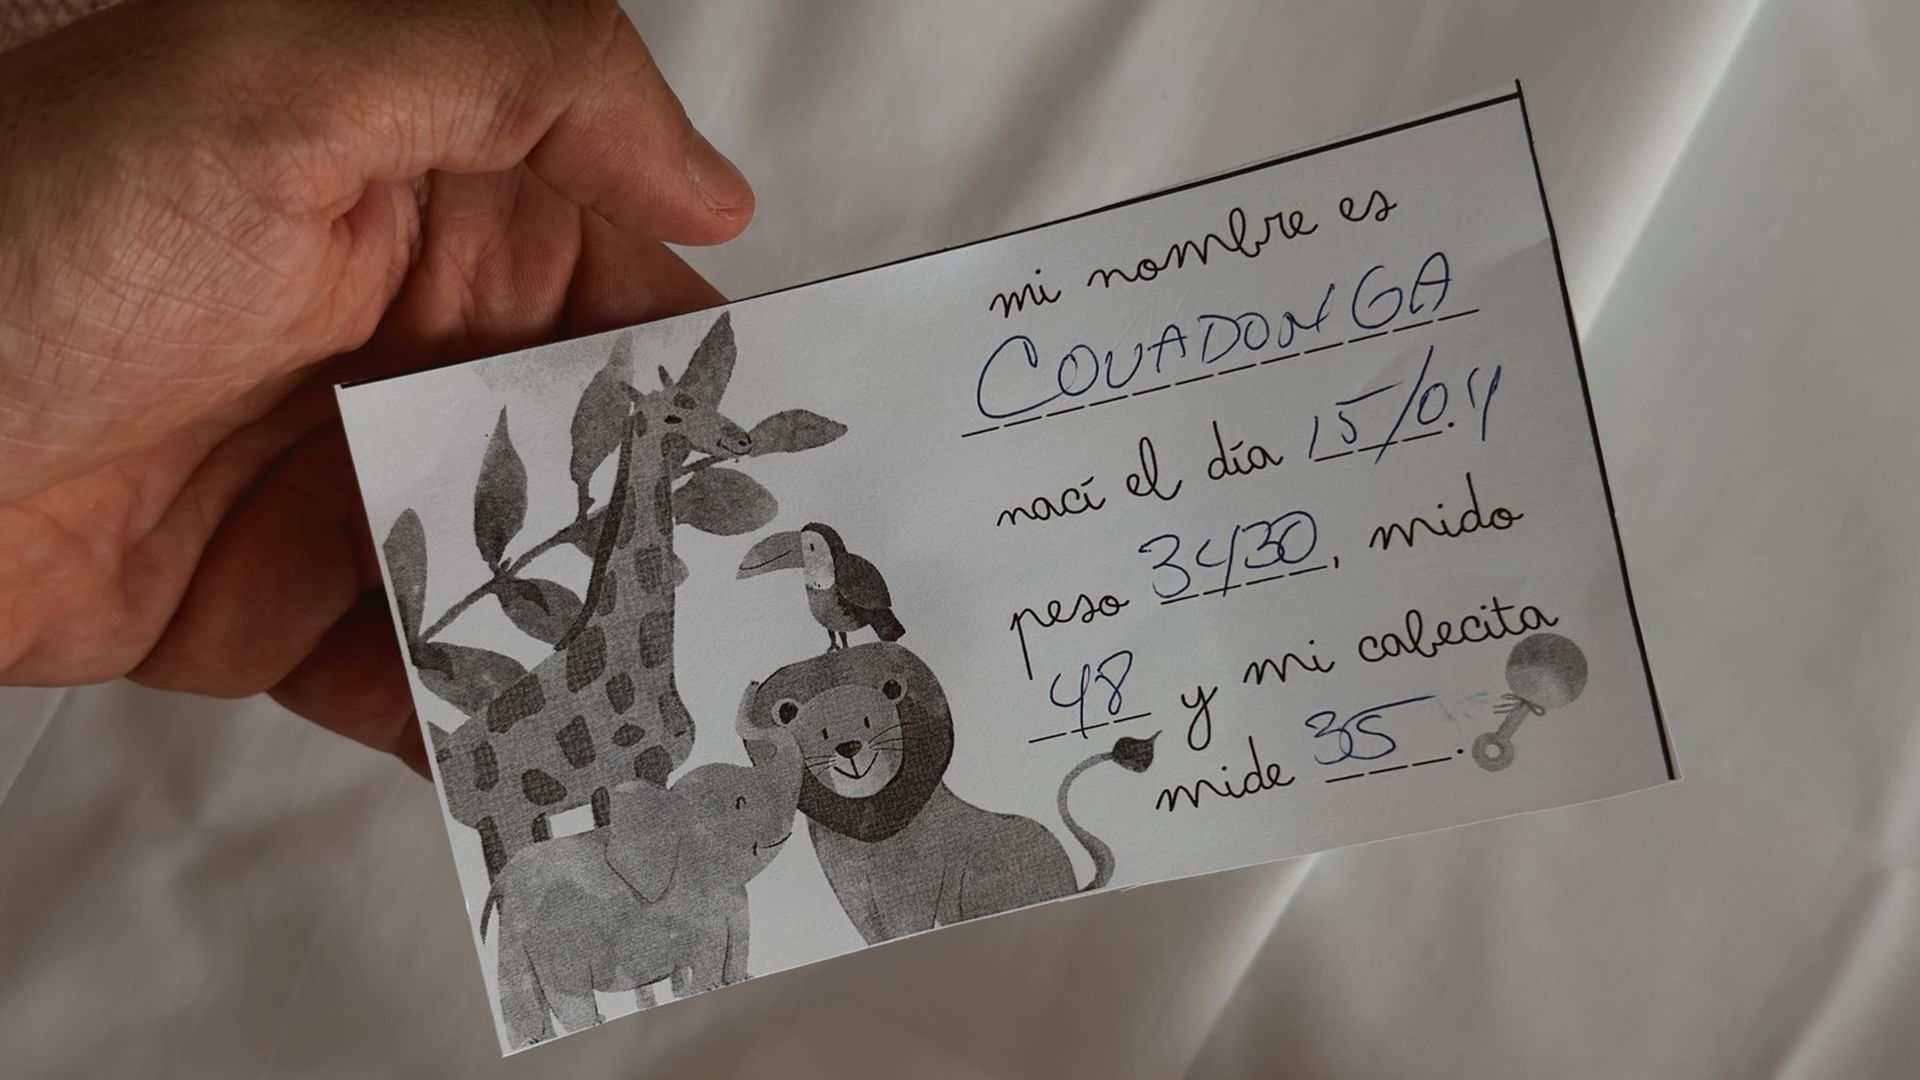 mi nombre es
COVADONGA
nací el día 15/04.
peso 3430, mido
48 y mi cabecita
mide 35.